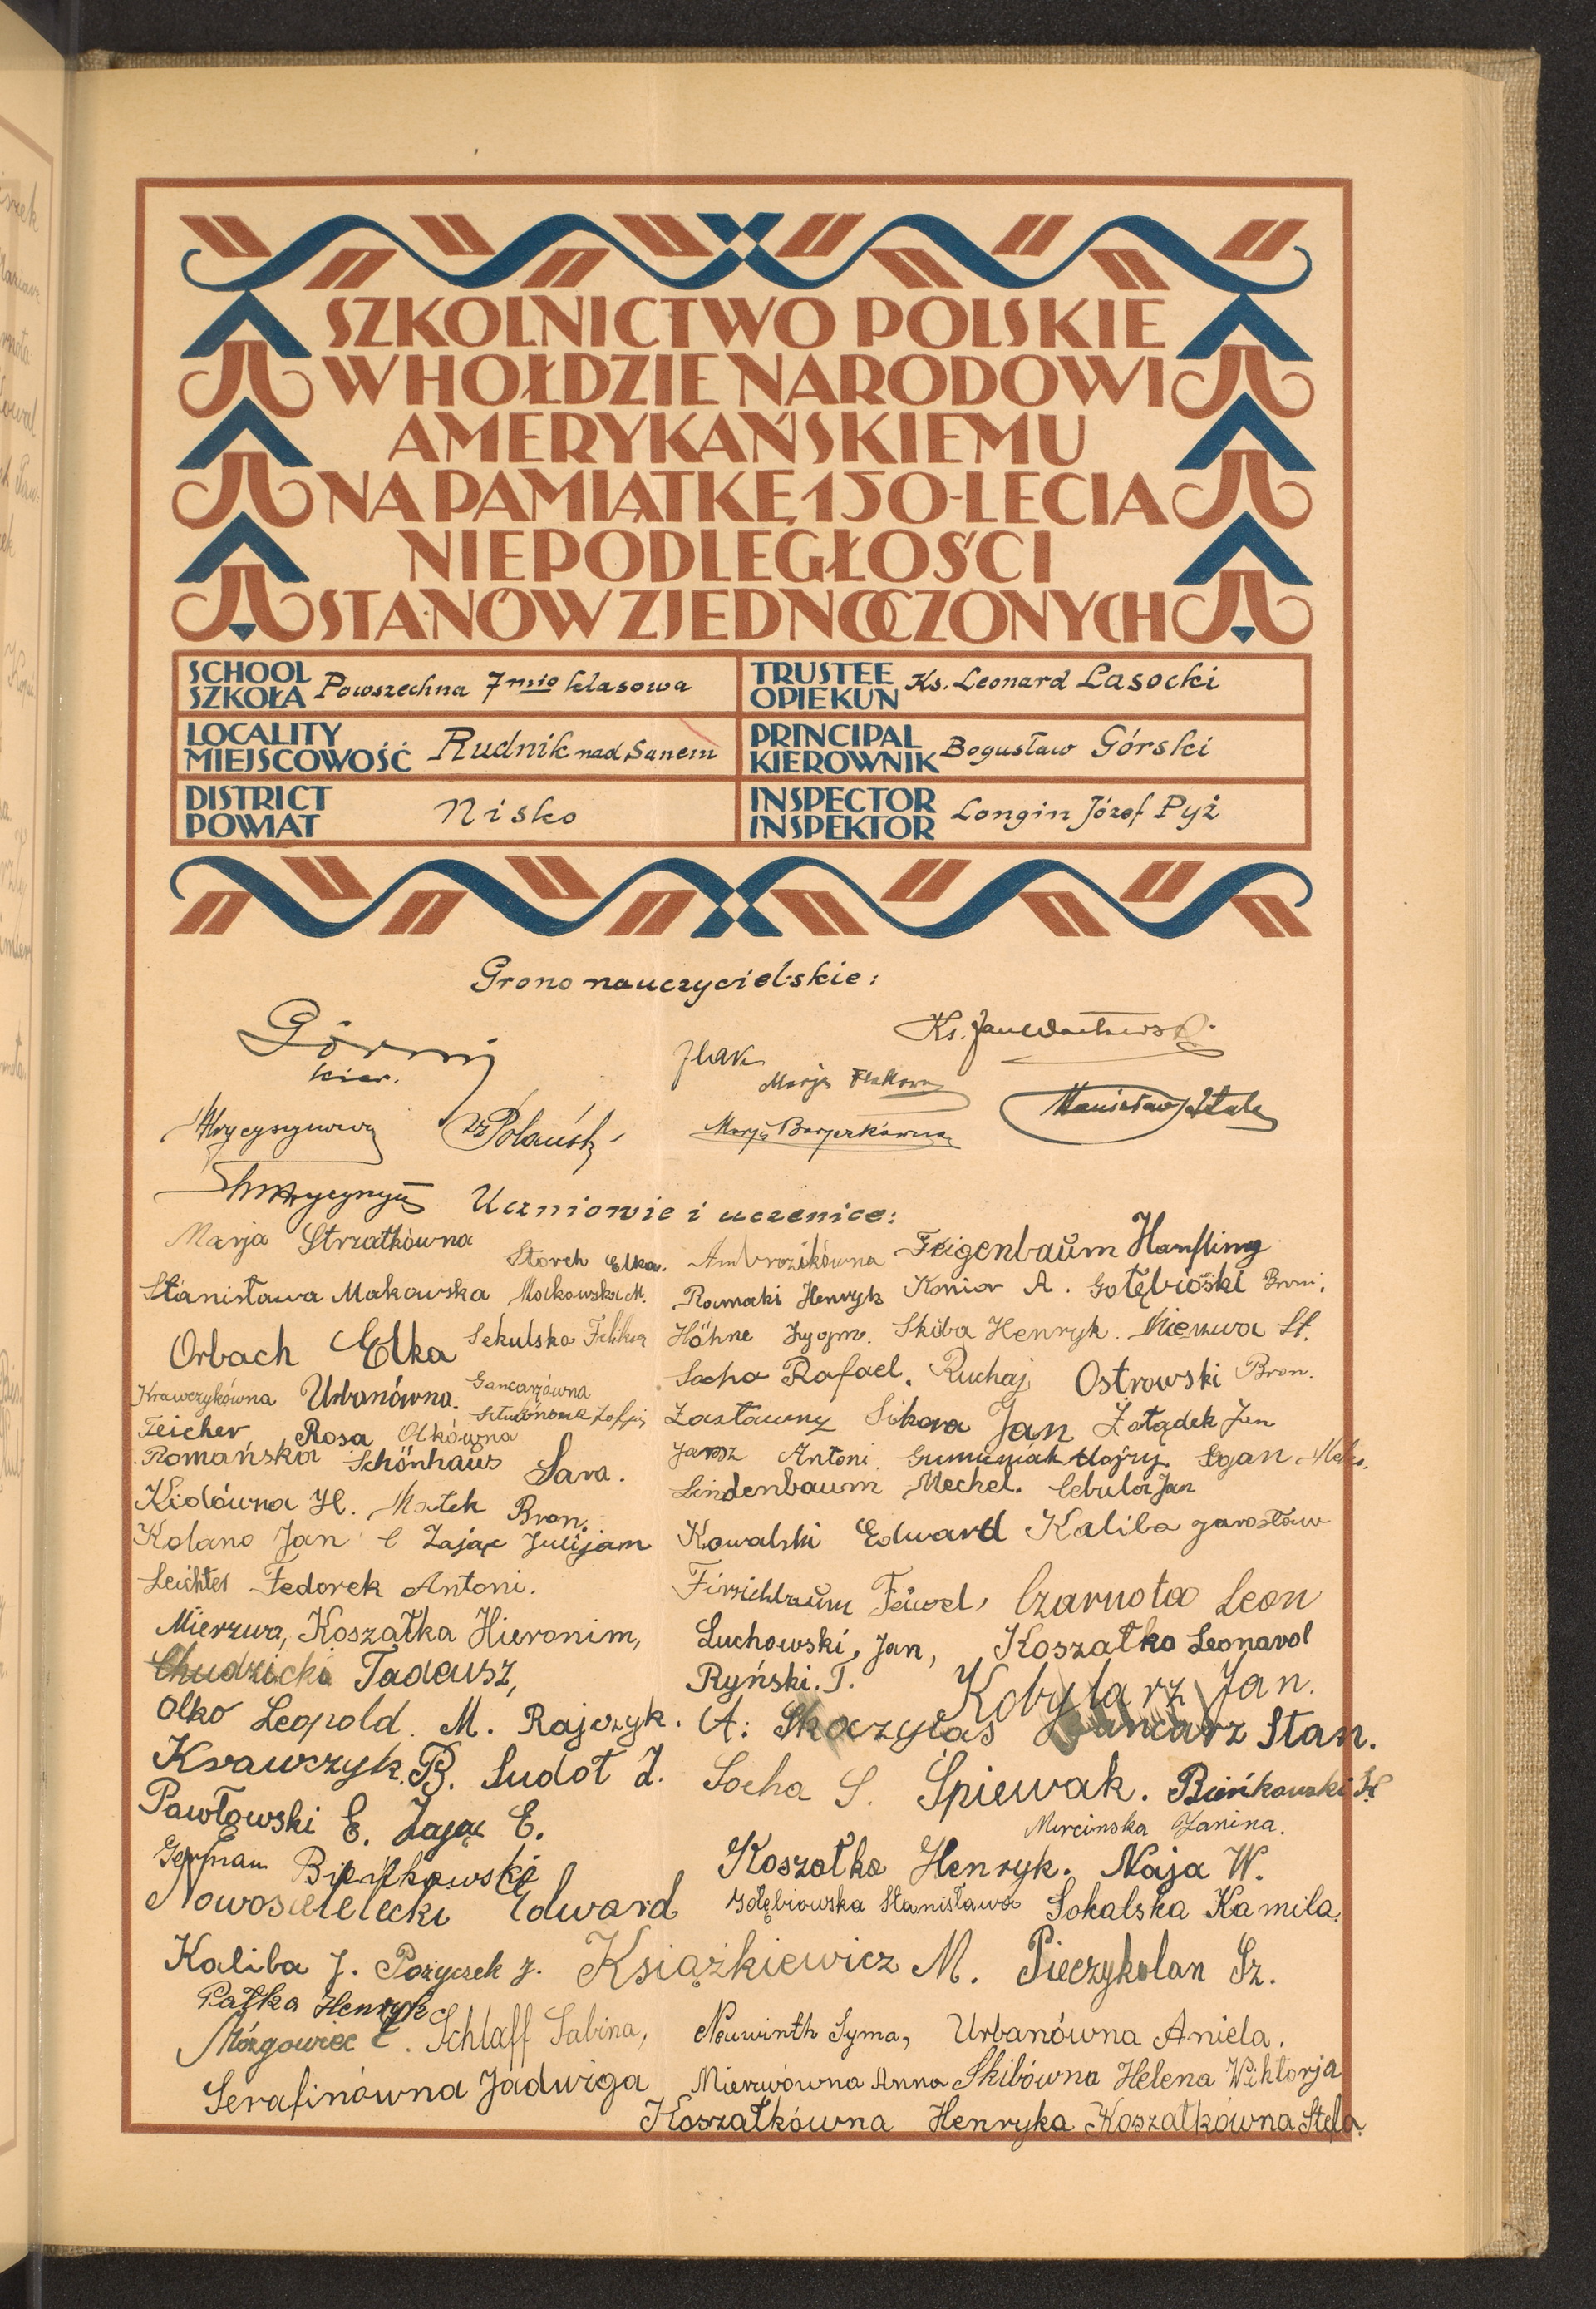 SZKOLNICTWO POLSKIE
W HOŁDZIE NARODOWI
AMERYKAŃSKIEMU
NA PAMIĄTKĘ 150-LECIA
NIEPODLEGŁOŚCI
STANÓW ZJEDNOCZONYCH
SCHOOL
SZKOŁA Powszechna 7mio klasowa
TRUSTEE
OPIEKUN Ks. Leonard Lasocki
LOCALITY
MIEJSCOWOŚĆ Rudnik nad Sanem
PRINCIPAL
KIEROWNIK Bogusław Górski
DISTRICT
POWIAT Nisko
INSPECTOR
INSPEKTOR Longin Józef Pyż
Grono nauczycielskie:
Ks. Jan
Górski
kier.
Flak
Marja Flakowa
Marja
Uczniowie i uczenice:
Marja Strzałkówna
Storch Elka. Ambrozikówna Feigenbaum
Stanisława Makowska Makowska M. Henryk Konior A. Gołębiowski Broni.
Orbach Elka Sekulska Feliksa Höhne Zygm. Skiba Henryk. Mierzwa St.
Krawczykówna Urbanówna. Gancarzówna Socha Rafael. Ruchaj Ostrowski Bron.
Teicher Rosa Olkówna Zastawny Sikora Jan Żołądek Jan
Romańska Schönhaus Sara. Jarosz Antoni Aleks.
Kidówna H. Małek Bron. Lindenbaum Mechel. Cebula Jan
Kolano Jan Zając Julijam Kowalski Edward Kaliba Jarosław
Leichter Fedorek Antoni. Czarnota Leon
Mierzwa, Koszałka Hieronim, Łuchowski, Jan, Koszałka Leonard
Chudzicki Tadeusz, Ryński. T. Kobylarz Jan.
Olko Leopold. M. Rajczyk. A: Skoczylas Gancarz Stan.
Krawczyk. B. Sudoł J. Socha S. Śpiewak. Bieńkowski
Pawłowski E. Zając E. Janina.
German Bieńkowski Koszałka Henryk. Naja W.
Edward Gołębiowska Stanisława Sokalska Kamila.
Kaliba J. Pożyczek J. Książkiewicz M. Pieczykolan Sz.
Pałka Henryk
Mózgowiec E. Schlaff Sabina, Neuwirth Syma, Urbanówna Aniela.
Serafinówna Jadwiga Mierzwówna Anna Skibówna Helena Wiktorja
Koszałkówna Henryka Koszałkówna Stefa.